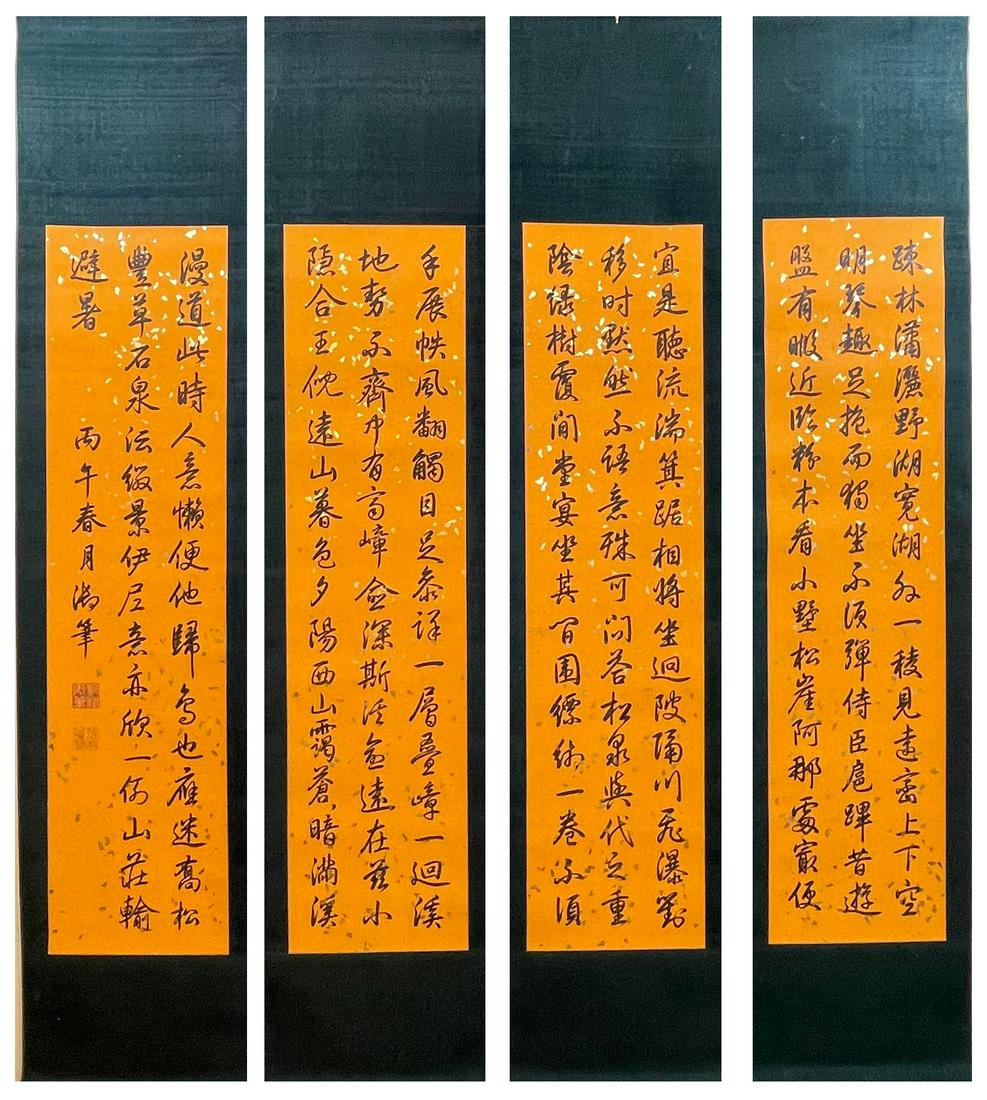 疎林瀟灑野湖寬湖外一稜見遠巒上下空
明琴趣足抱而獨坐不須彈侍臣扈蹕昔遊
盤有暇近臨粉本看小墅松崖阿那處最便
宜是聽流湍箕踞相將坐迴陂隔川飛瀑對
移時默然不語意殊可問答松泉與代之重
陰綠樹覆閒堂宴坐其間圍縹緗一卷不須
手展帙風翻觸目足參詳一層疊嶂一迴溪
地勢不齊中有高嶂僉深斯泛僉遠在茲小
隱合王倪遠山暮色夕陽西山靄蒼暗滿溪
漫道此時人意懶便他歸鳥也應迷喬松
豐草石泉沄緻景伊尼意亦欣一例山莊輸
避暑 丙午春月御筆